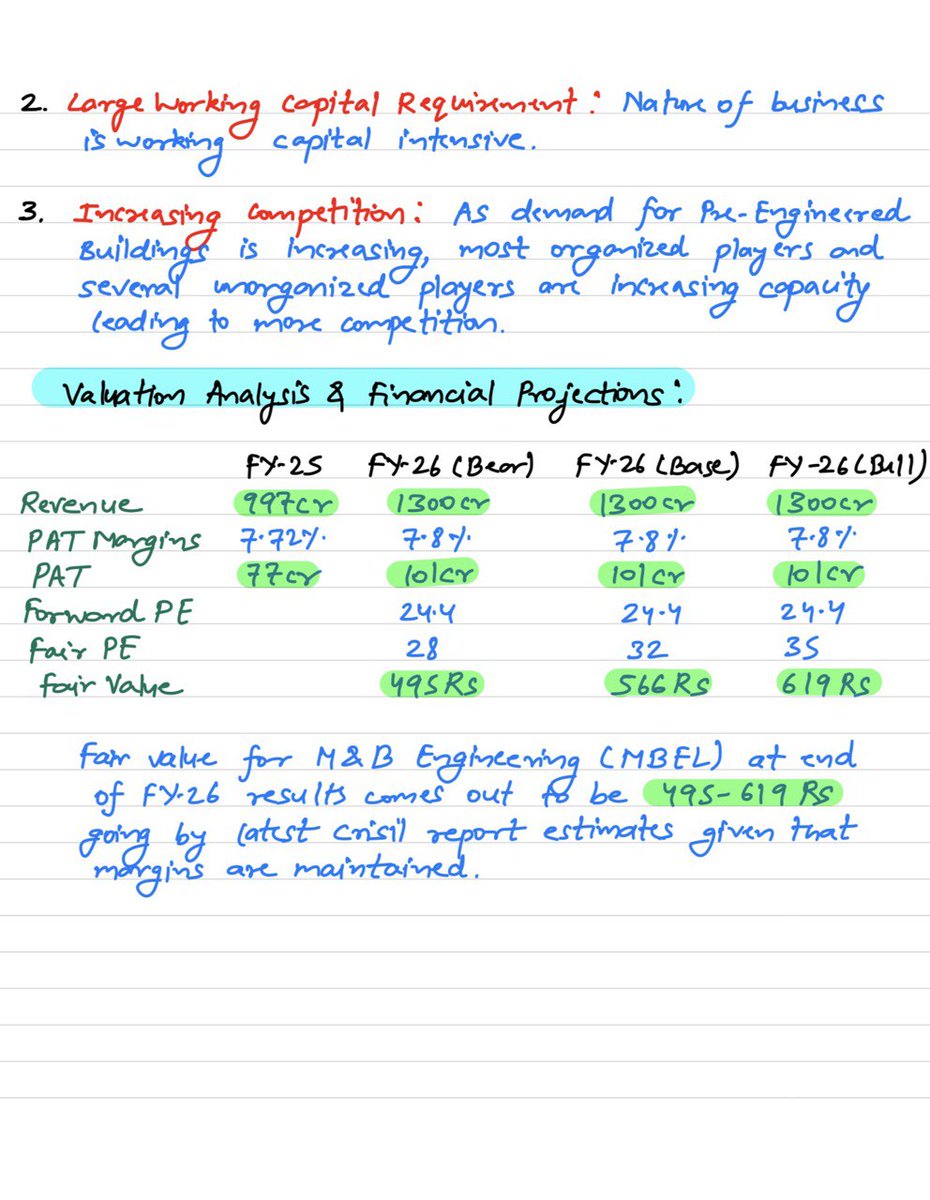 2. Large Working Capital Requirement: Nature of business
is working capital intensive.
3. Increasing Competition: As demand for Pre-Engineered
Buildings is increasing, most organized players and
several unorganized players are increasing capacity
leading to more competition.
Valuation Analysis & Financial Projections:
FY-25 FY-26 (Bear) FY-26 (Base) FY-26 (Bull)
Revenue 997cr 1300cr 1300cr 1300cr
PAT Margins 7.72% 7.8% 7.8% 7.8%
PAT 77cr 101cr 101cr 101cr
Forward PE 24.4 24.4 24.4
Fair PE 28 32 35
Fair Value 495 Rs 566 Rs 619 Rs
Fair value for M&B Engineering (MBEL) at end
of FY-26 results comes out to be 495-619 Rs
going by latest Crisil report estimates given that
margins are maintained.